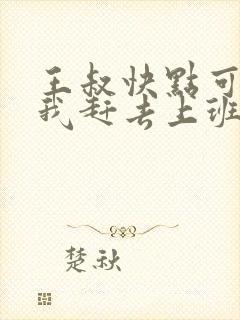 王叔快點可
我赶去上班
楚秋